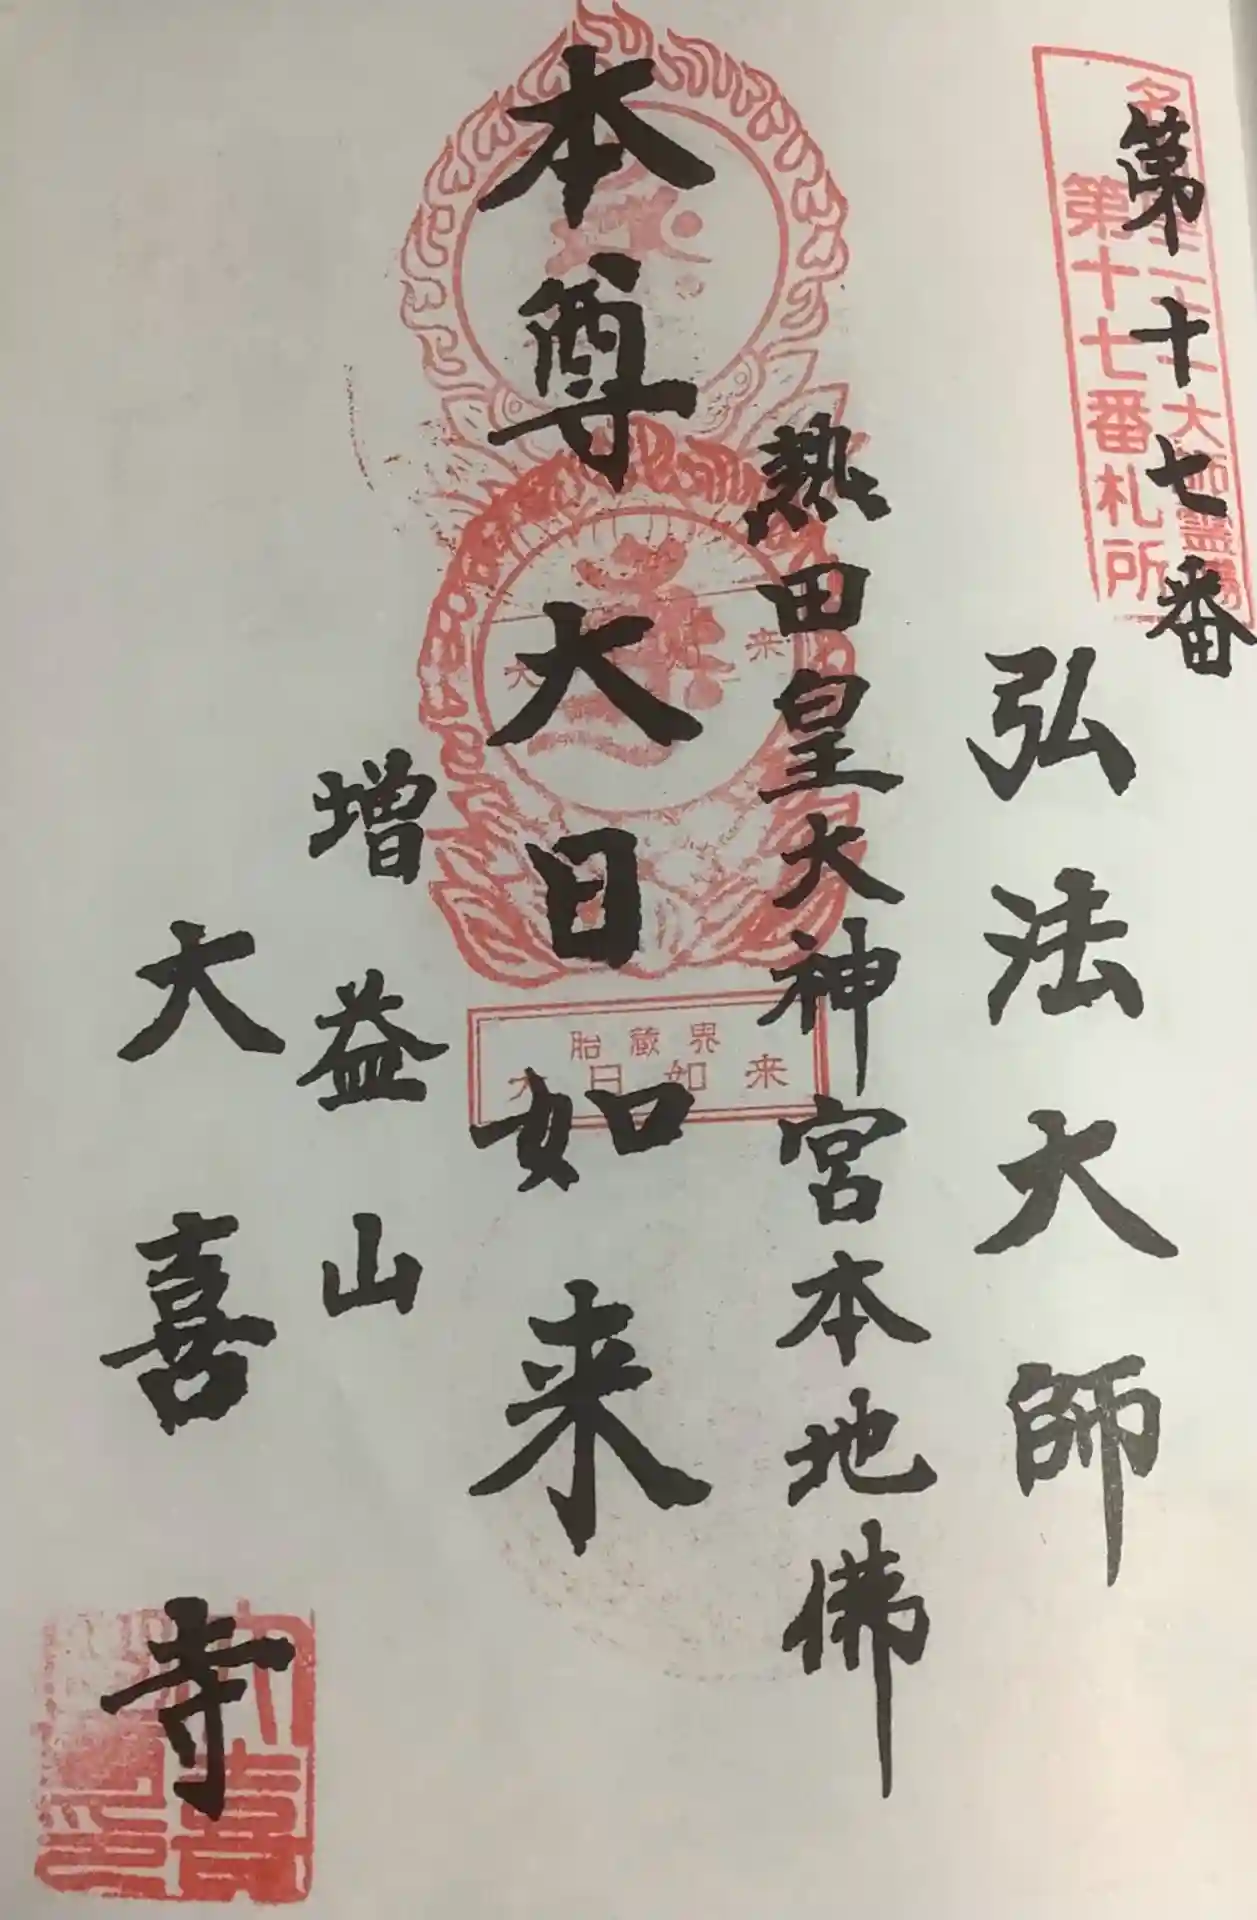 第十七番
名古屋二十一大師霊場
第十七番札所
弘法大師
熱田皇大神宮本地佛
本尊大日如来
胎蔵界
大日如来
増益山
大喜寺